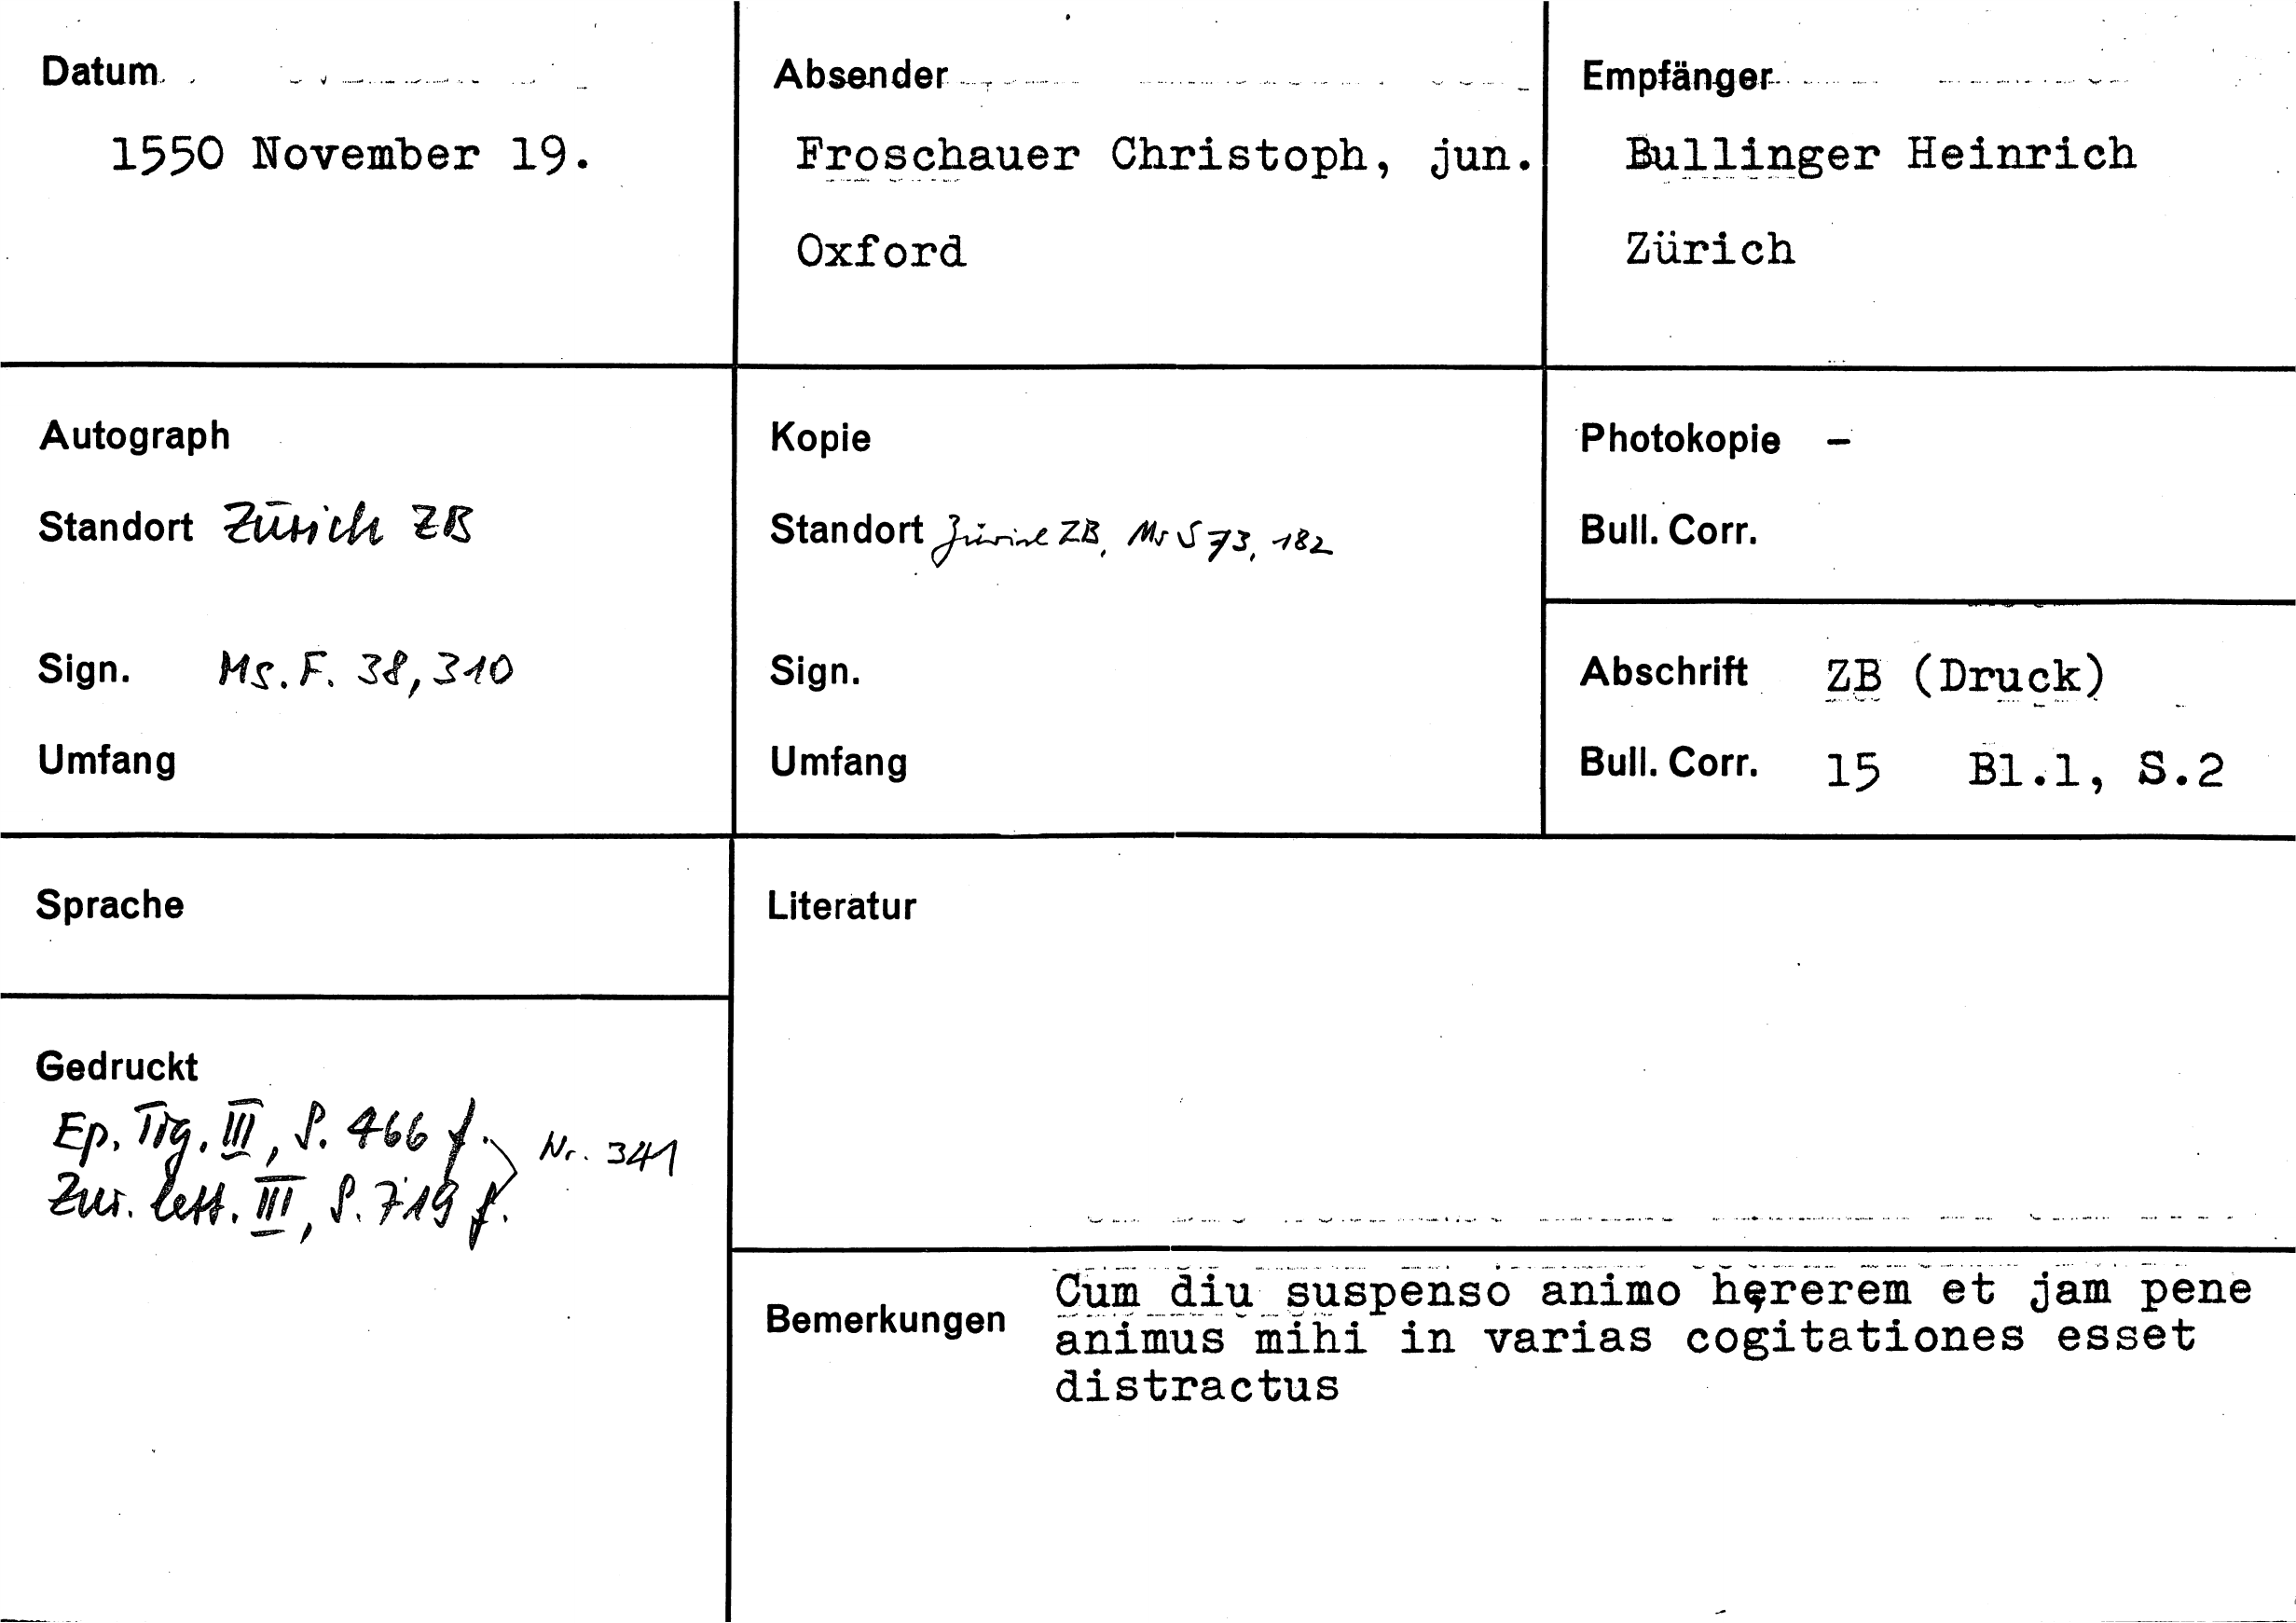 Datum
1550 November 19.
Absender
Froschauer Christoph, jun.
Oxford
Empfänger
Bullinger Heinrich
Zürich
Autograph
Standort Zürich ZB
Sign. Ms. F. 38, 310
Umfang
Kopie
Standort Zürich ZB, Ms S 73, 182
Sign.
Umfang
Photokopie –
Bull. Corr.
Abschrift ZB (Druck)
Bull. Corr. 15 Bl.1, S.2
Sprache
Literatur
Gedruckt
Ep. Tig. III, S. 466 f.
Zur. lett. III, S. 719 f.
Nr. 341
Bemerkungen
Cum diu suspenso animo hęrerem et jam pene
animus mihi in varias cogitationes esset
distractus